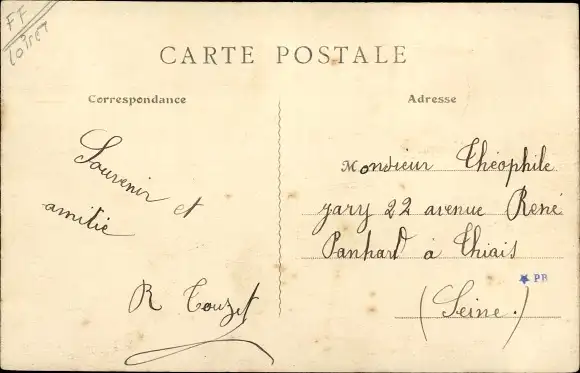 FF
Loiret
CARTE POSTALE
Correspondance
Adresse
Souvenir et
amitié
R Touzet
Monsieur Théophile
gary 22 avenue René
Panhard à Thiais
★ PB
(Seine.)